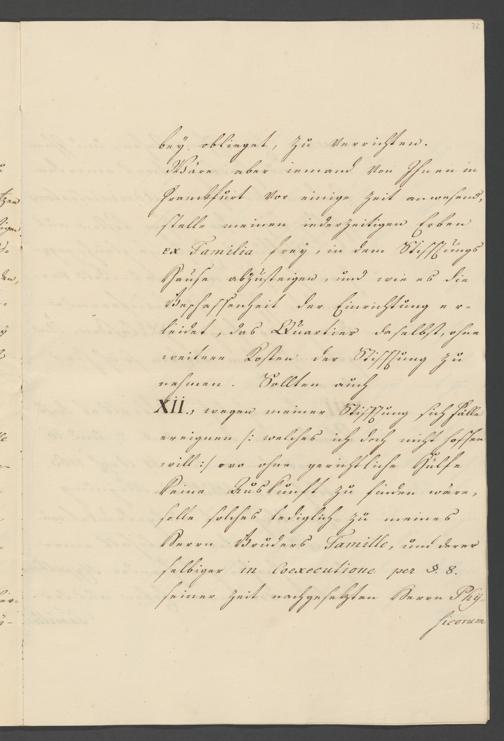 72
bey oblieget, zu verrichten.
Wäre aber jemand von Ihnen in
Franckfurt vor einige Zeit anwesend,
stelle meinen jederzeitigen Erben
ex Familia frey, in dem Stifftungs
Hause abzusteigen, und wie es die
Beschaffenheit der Einrichtung er-
leidet, das Quartier daselbst, ohne
weitere Kosten der Stifftung zu
nehmen. Sollten auch
XII., wegen meiner Stifftung sich Fälle
ereignen /: welches ich doch nicht hoffen
will :/ wo ohne gerichtliche Hülfe
keine Auskunft zu finden wäre,
solle solches lediglich zu meines
Herrn Bruders Famille, und derer
selbiger in Coexecutione per §. 8.
seiner Zeit nachgesetzten Herrn Phy-
sicorum